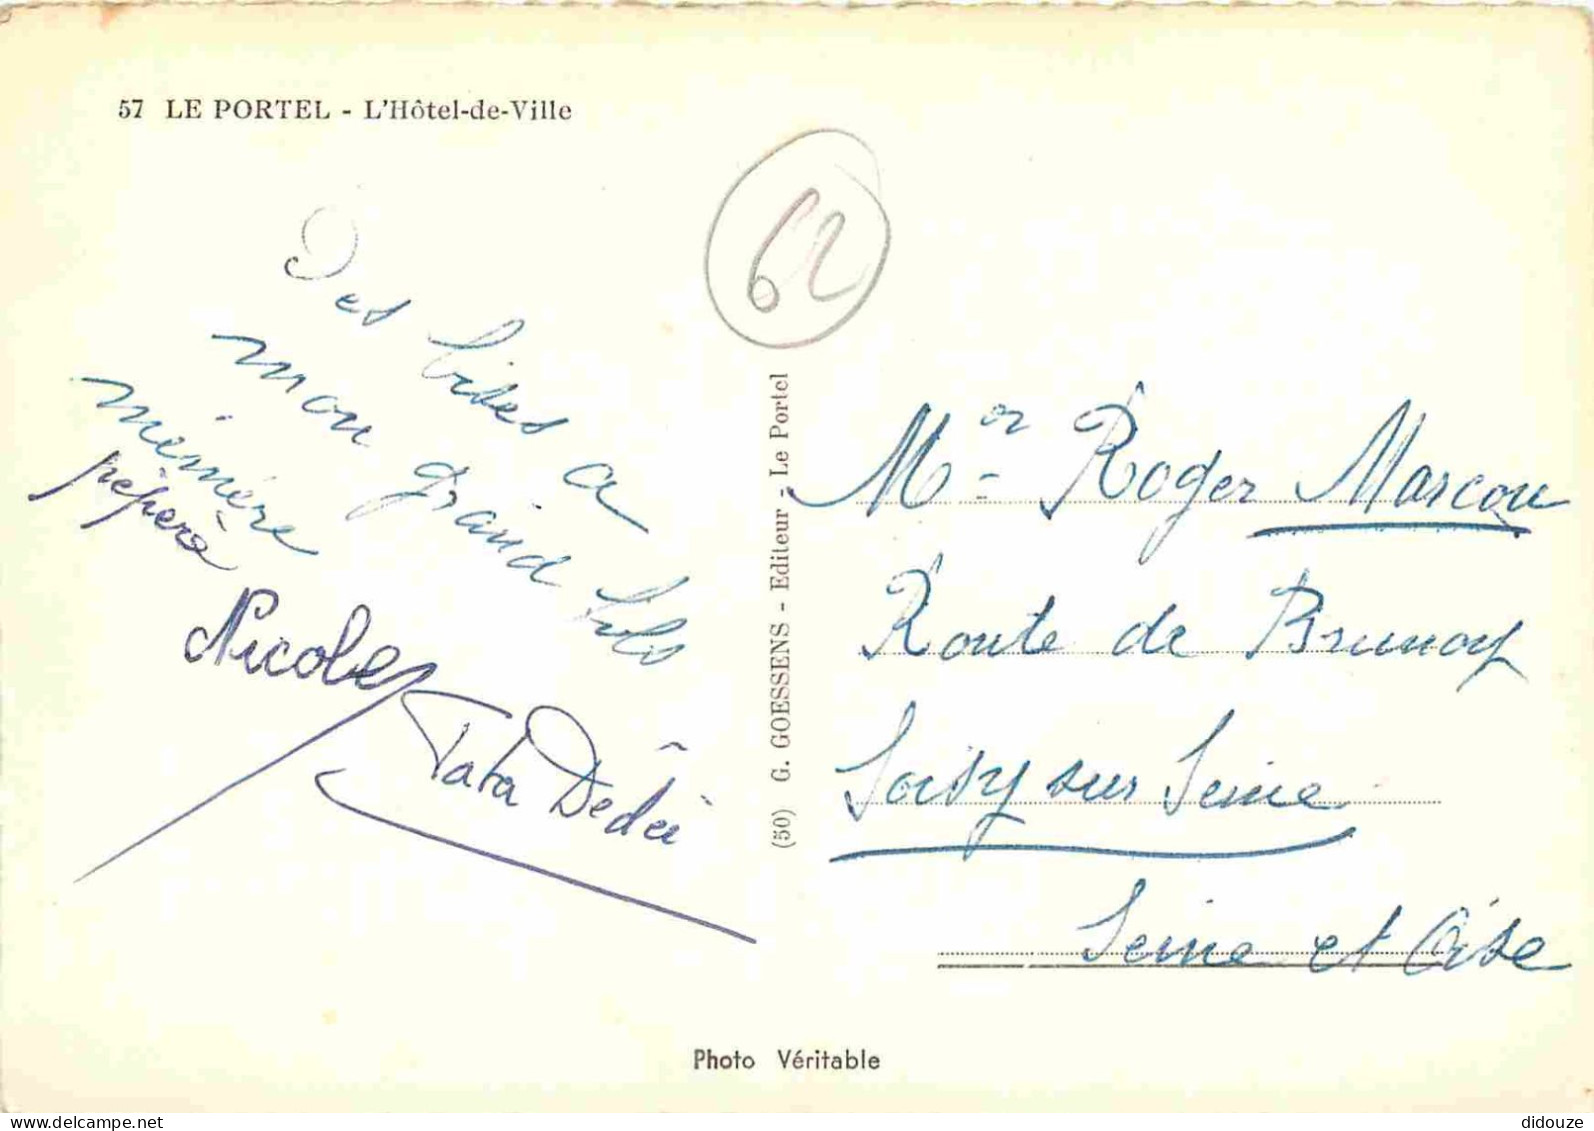 57 LE PORTEL - L'Hôtel-de-Ville
62
Des bises a
mon grand fils
mémère
pépère
Nicole
Tata Dédée
(50) G. GOESSENS - Editeur - Le Portel
Mr Roger Marcou
Route de Brunoy
Soisy sur Seine
Seine et Oise
Photo Véritable
didouze